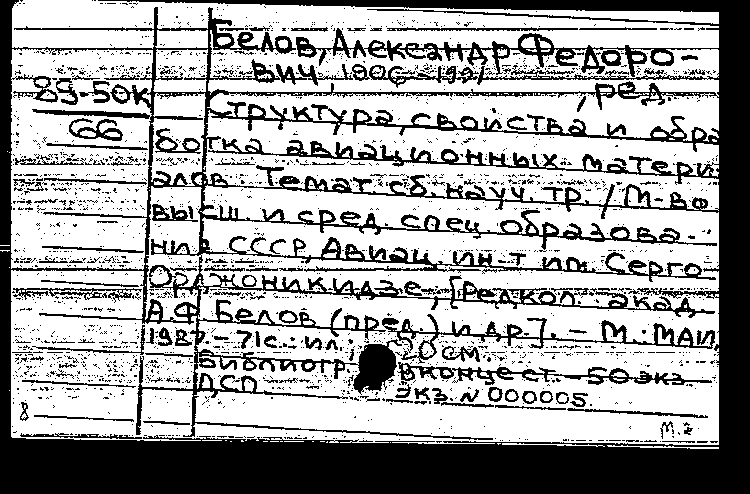 Белов, Александр Федоро-
вич, 1906-1991
, ред.
89-50к
66
Структура, свойства и обра
ботка авиационных матери
алов. Темат. сб. науч. тр. / М-во
высш. и сред. спец. образова-
ния СССР, Авиац. ин-т им. Серго
Орджоникидзе, [Редкол.: акад.
А.Ф. Белов (пред.) и др.]. - М.: МАИ,
1987. - 71с.: ил.; 20см.
Библиогр. в конце ст. - 50 экз
ДСП. экз. N 000005.
8
М.2